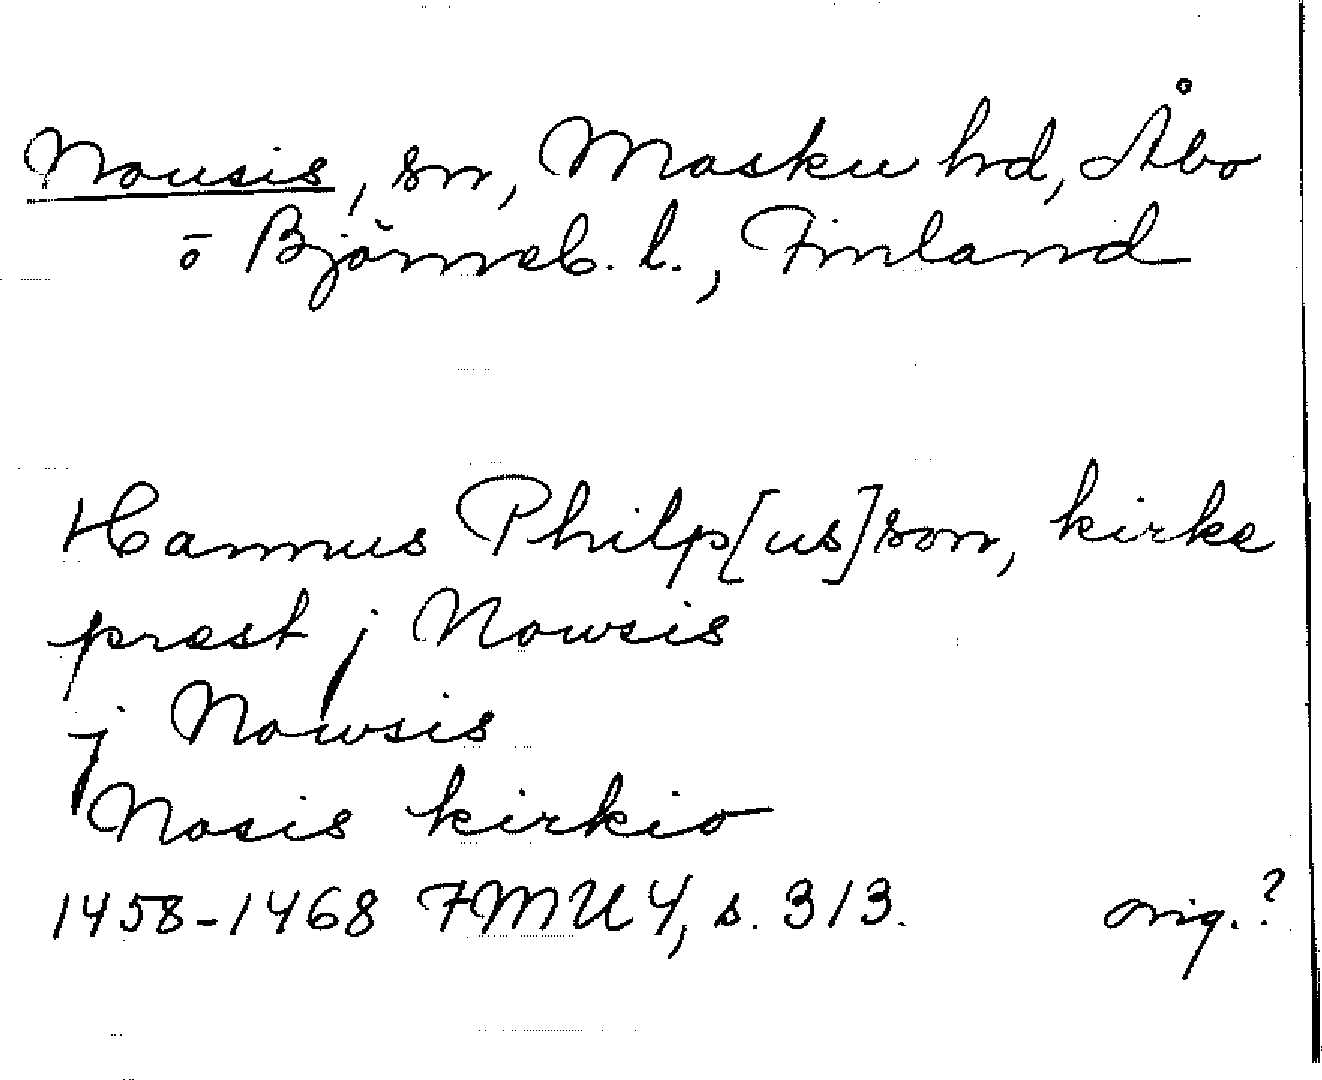 Nousis, sn, Masku hd, Åbo
o Björneb. l., Finland
Hannus Philp[us]son, kirke
prest j Nowsis
j Nowsis
Nosis kirkio
1458-1468 FMU 4, s. 313. orig.?